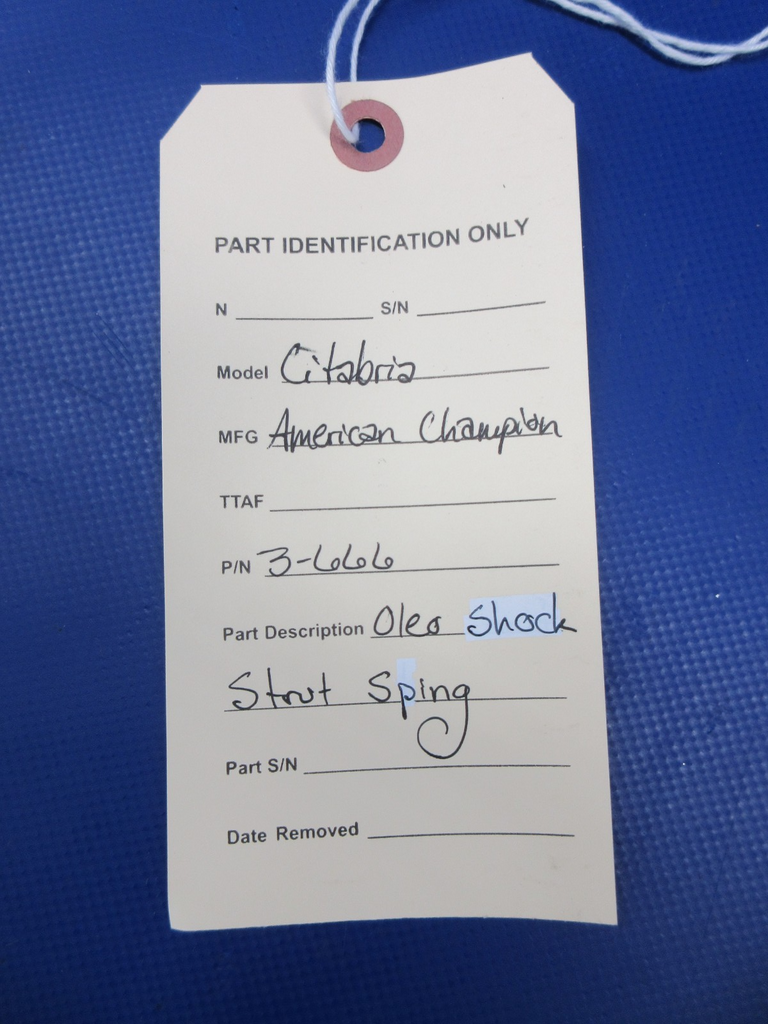 PART IDENTIFICATION ONLY
N S/N
Model Citabria
MFG American Champion
TTAF
P/N 3-666
Part Description Oleo Shock
Strut Sping
Part S/N
Date Removed